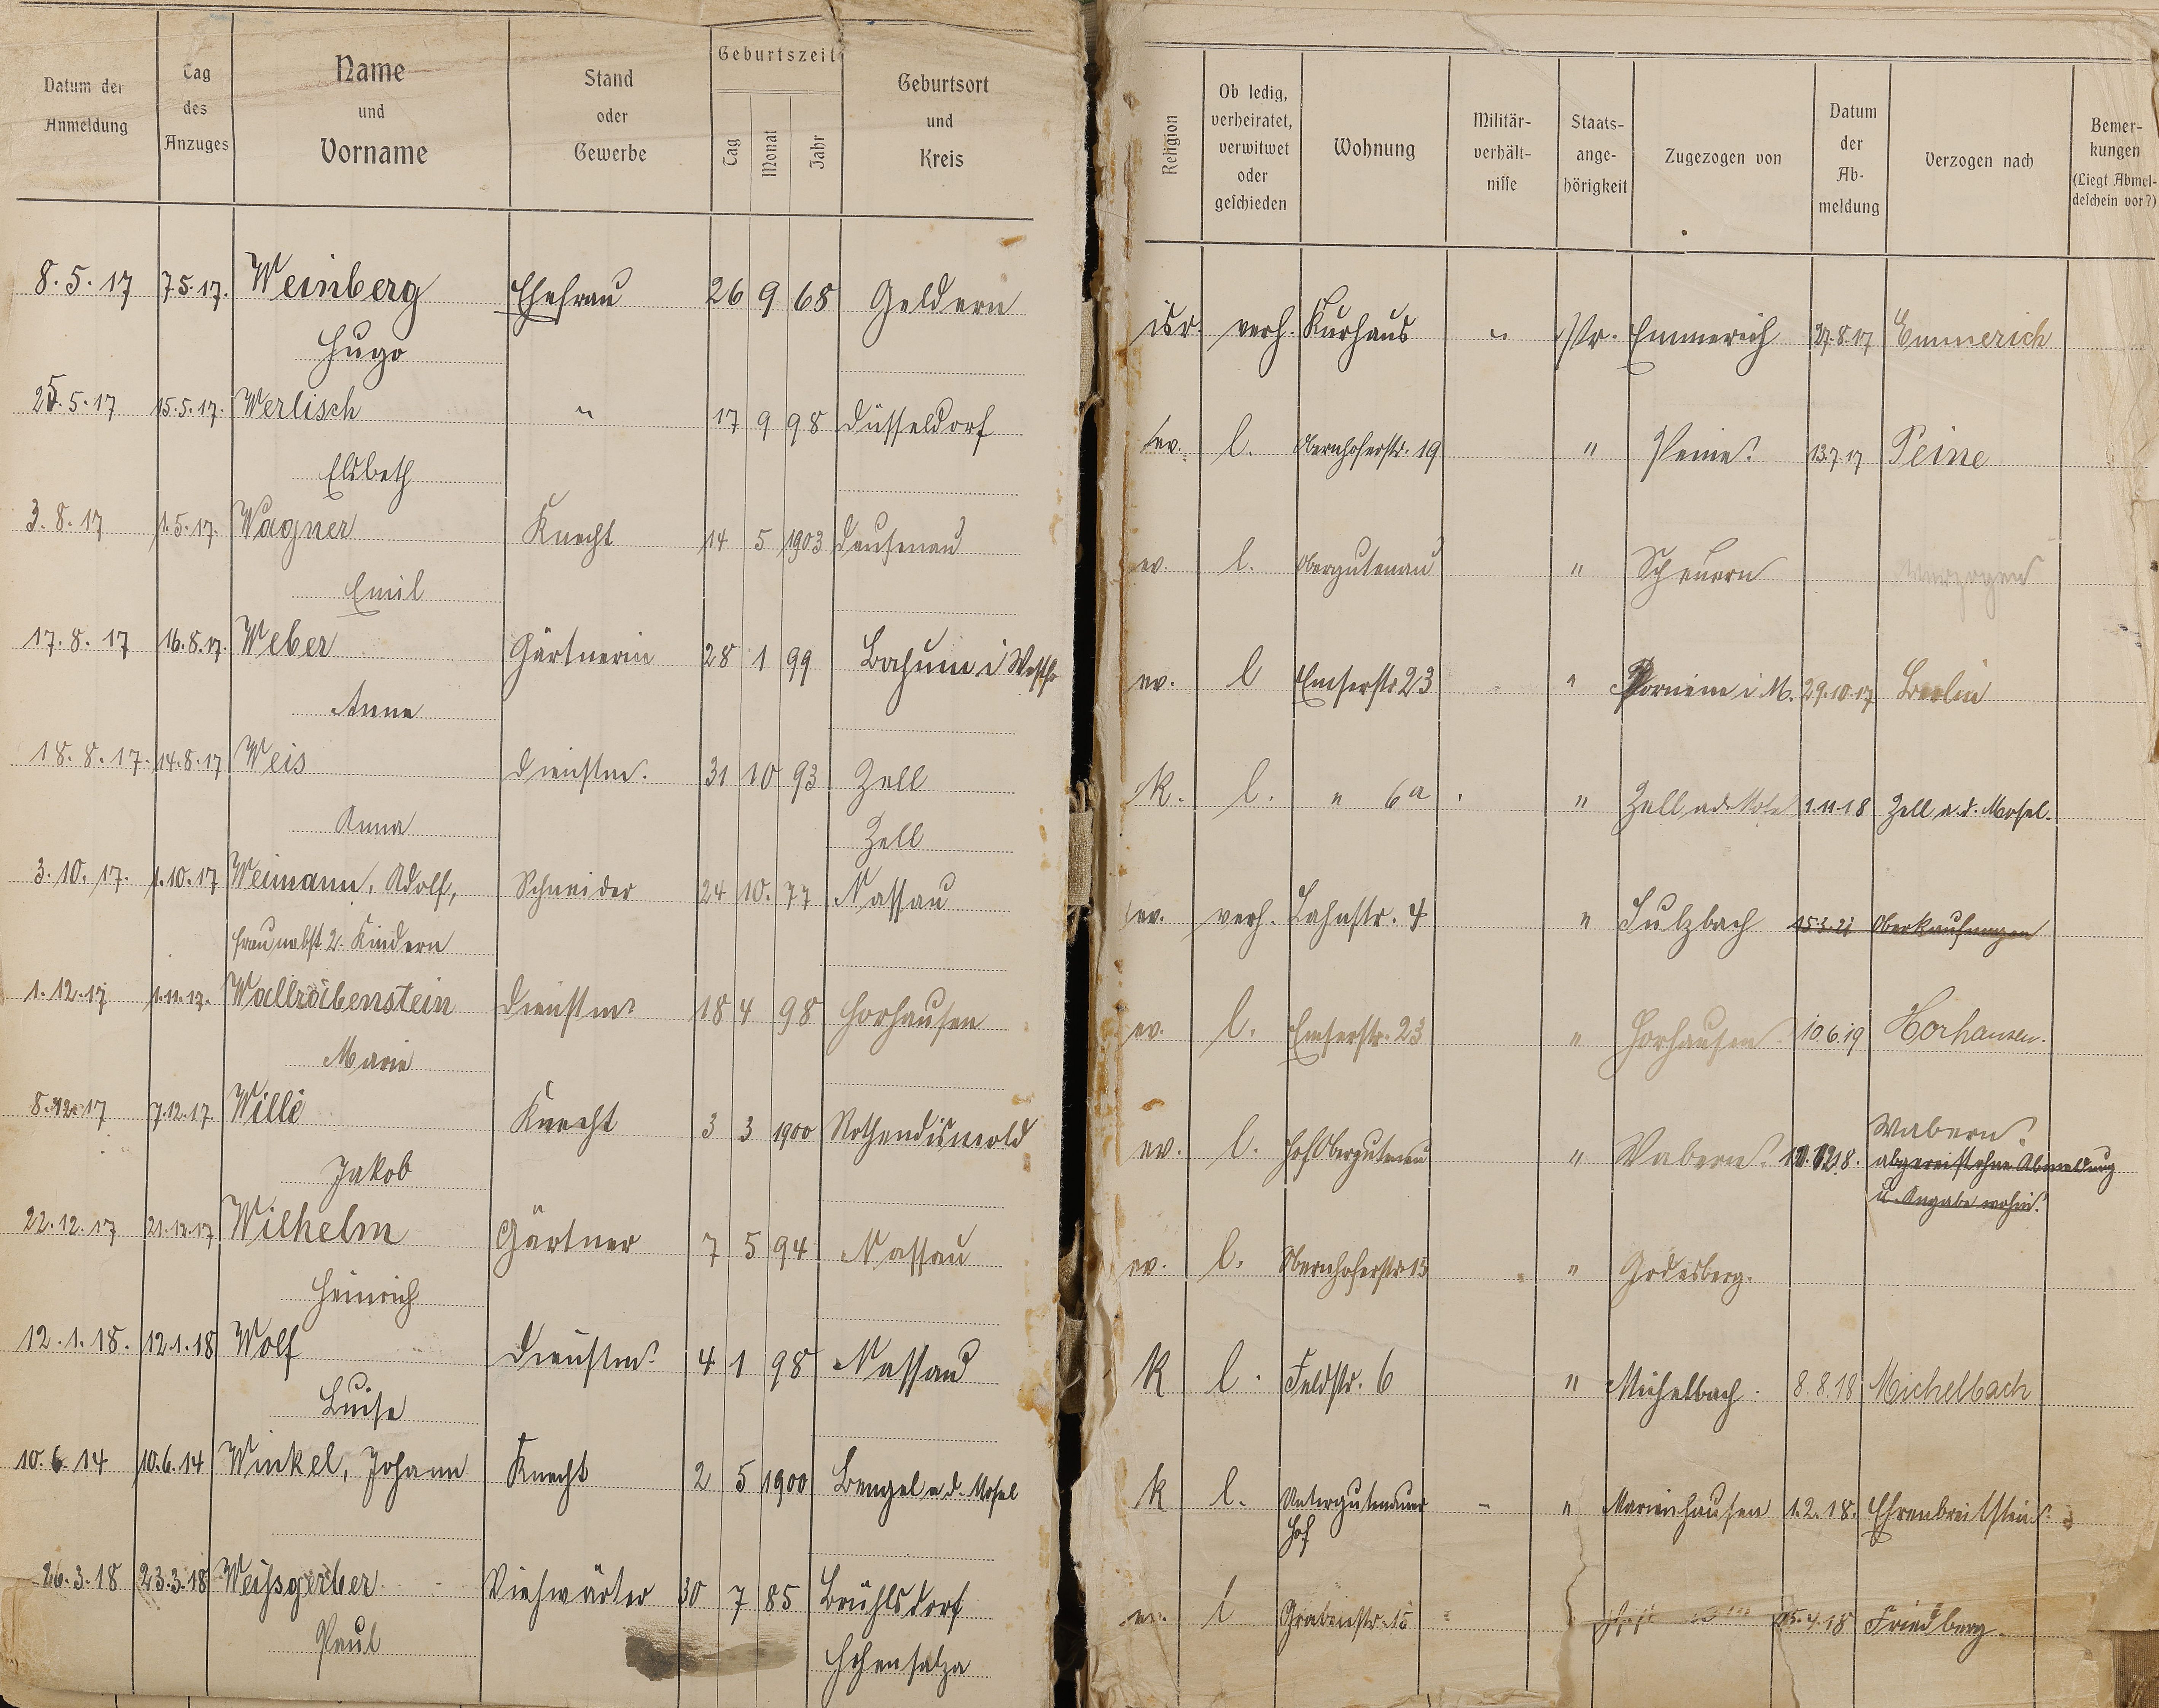 Datum der Anmeldung
Tag des Anzuges
Name und Vorname
Stand oder Gewerbe
Geburtszeit
Tag Monat Jahr
Geburtsort und Kreis
Religion
Ob ledig, verheiratet, verwitwet oder geschieden
Wohnung
Militär-verhält-nisse
Staats-ange-hörigkeit
Zugezogen von
Datum der Ab-meldung
Verzogen nach
Bemer-kungen (Liegt Abmel-deschein vor?)
8.5.17 7.5.17. Weinberg Ehefrau 26 9 68 Geldern isr. verh. Kurhaus " Pr. Emmerich 27.8.17 Emmerich
Hugo
25.5.17 15.5.17. Werlisch " 17 9 98 Düsseldorf ev. l. Obernhoferstr. 19 " Peine 13.7.17 Peine
Elsbeth
3.8.17 1.5.17. Wagner Knecht 14 5 1903 Dausenau ev. l. Obergutenau " Scheuern
Emil
17.8.17 16.8.17. Weber Gärtnerin 28 1 99 Bochum i Westf. ev. l Emserstr 23 " i M. 29.10.17 Berlin
Anna
18.8.17. 14.8.17 Weis Dienstm. 31 10 93 Zell K. l. " 6a " Zell a.d. 1.11.18 Zell a.d. Mosel.
Anna Zell
3.10.17. 1.10.17 Weimann, Adolf, Schneider 24 10. 77 Nassau ev. verh. Lahnstr. 4 " Sulzbach 15.3.21 Oberkaufungen
Frau nebst 2 Kindern
1.12.17 1.11.17. Wallrabenstein Dienstm. 18 4 98 Horhausen ev. l. Emserstr. 23 " Horhausen 10.6.19 Horhausen.
Marie
8.12.17 7.12.17 Wille Knecht 3 3 1900 Rothenditmold ev. l. Hof Obergutenau " Wabern Wabern
abgereist ohne Abmeldung
Jakob u. Angabe wohin.
22.12.17 21.12.17 Wilhelm Gärtner 7 5 94 Nassau ev. l. Obernhoferstr 15 " Godesberg.
Heinrich
12.1.18. 12.1.18 Wolf Dienstm. 4 1 98 Nassau K l. Feldstr. 6 " Michelbach. 8.8.18 Michelbach
Luise
10.6.14 10.6.14 Winkel, Johann Knecht 2 5 1900 Bengel a.d. Mosel K l. Untergutenauer - " Marienhausen 1.2.18. Ehrenbreitstein
Hof
26.3.18 23.3.18 Weißgerber Viehwärter 30 7 85 Brühlsdorf ev. l Grabenstr. 15 " 4.18 Friedberg.
Paul Hohensalza